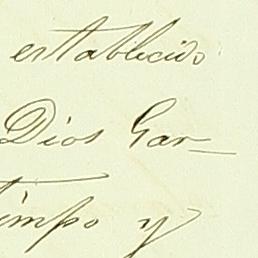 establecido
Dios Gar-
timpo y